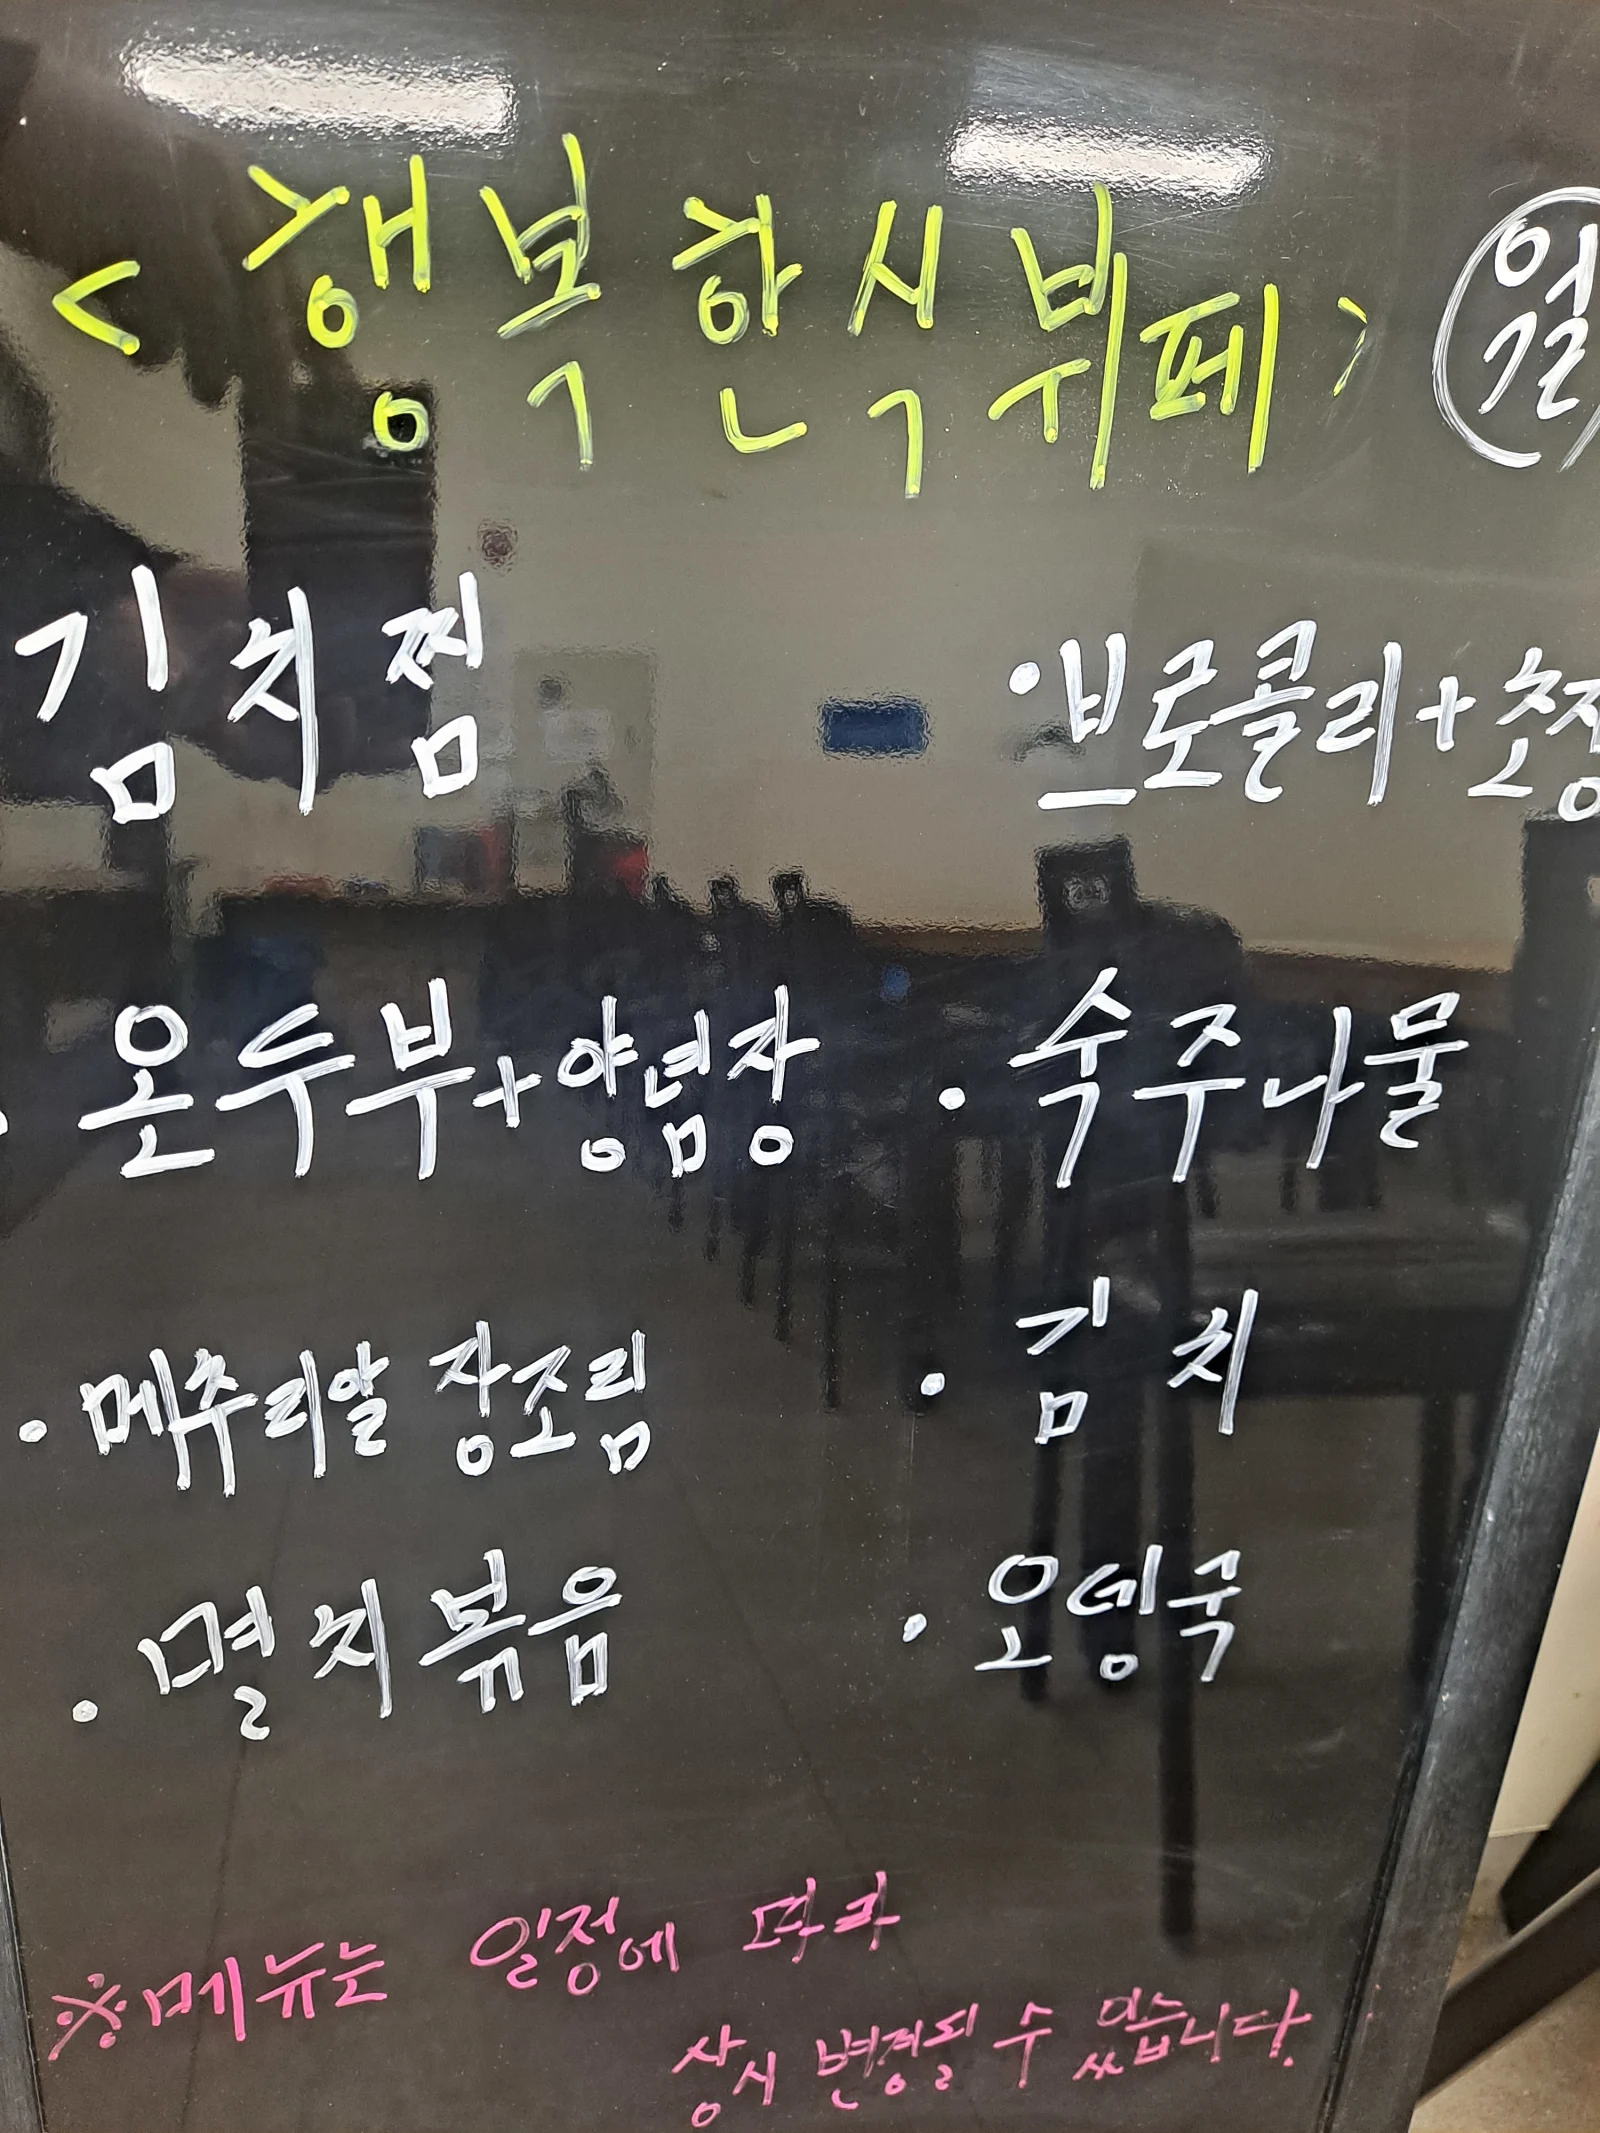 <행복한식뷔페> 월
김치찜
·브로콜리+초장
·온두부+양념장
·숙주나물
·메추리알 장조림
·김치
·멸치볶음
·오뎅국
※메뉴는 일정에 따라
상시 변경될 수 있습니다.